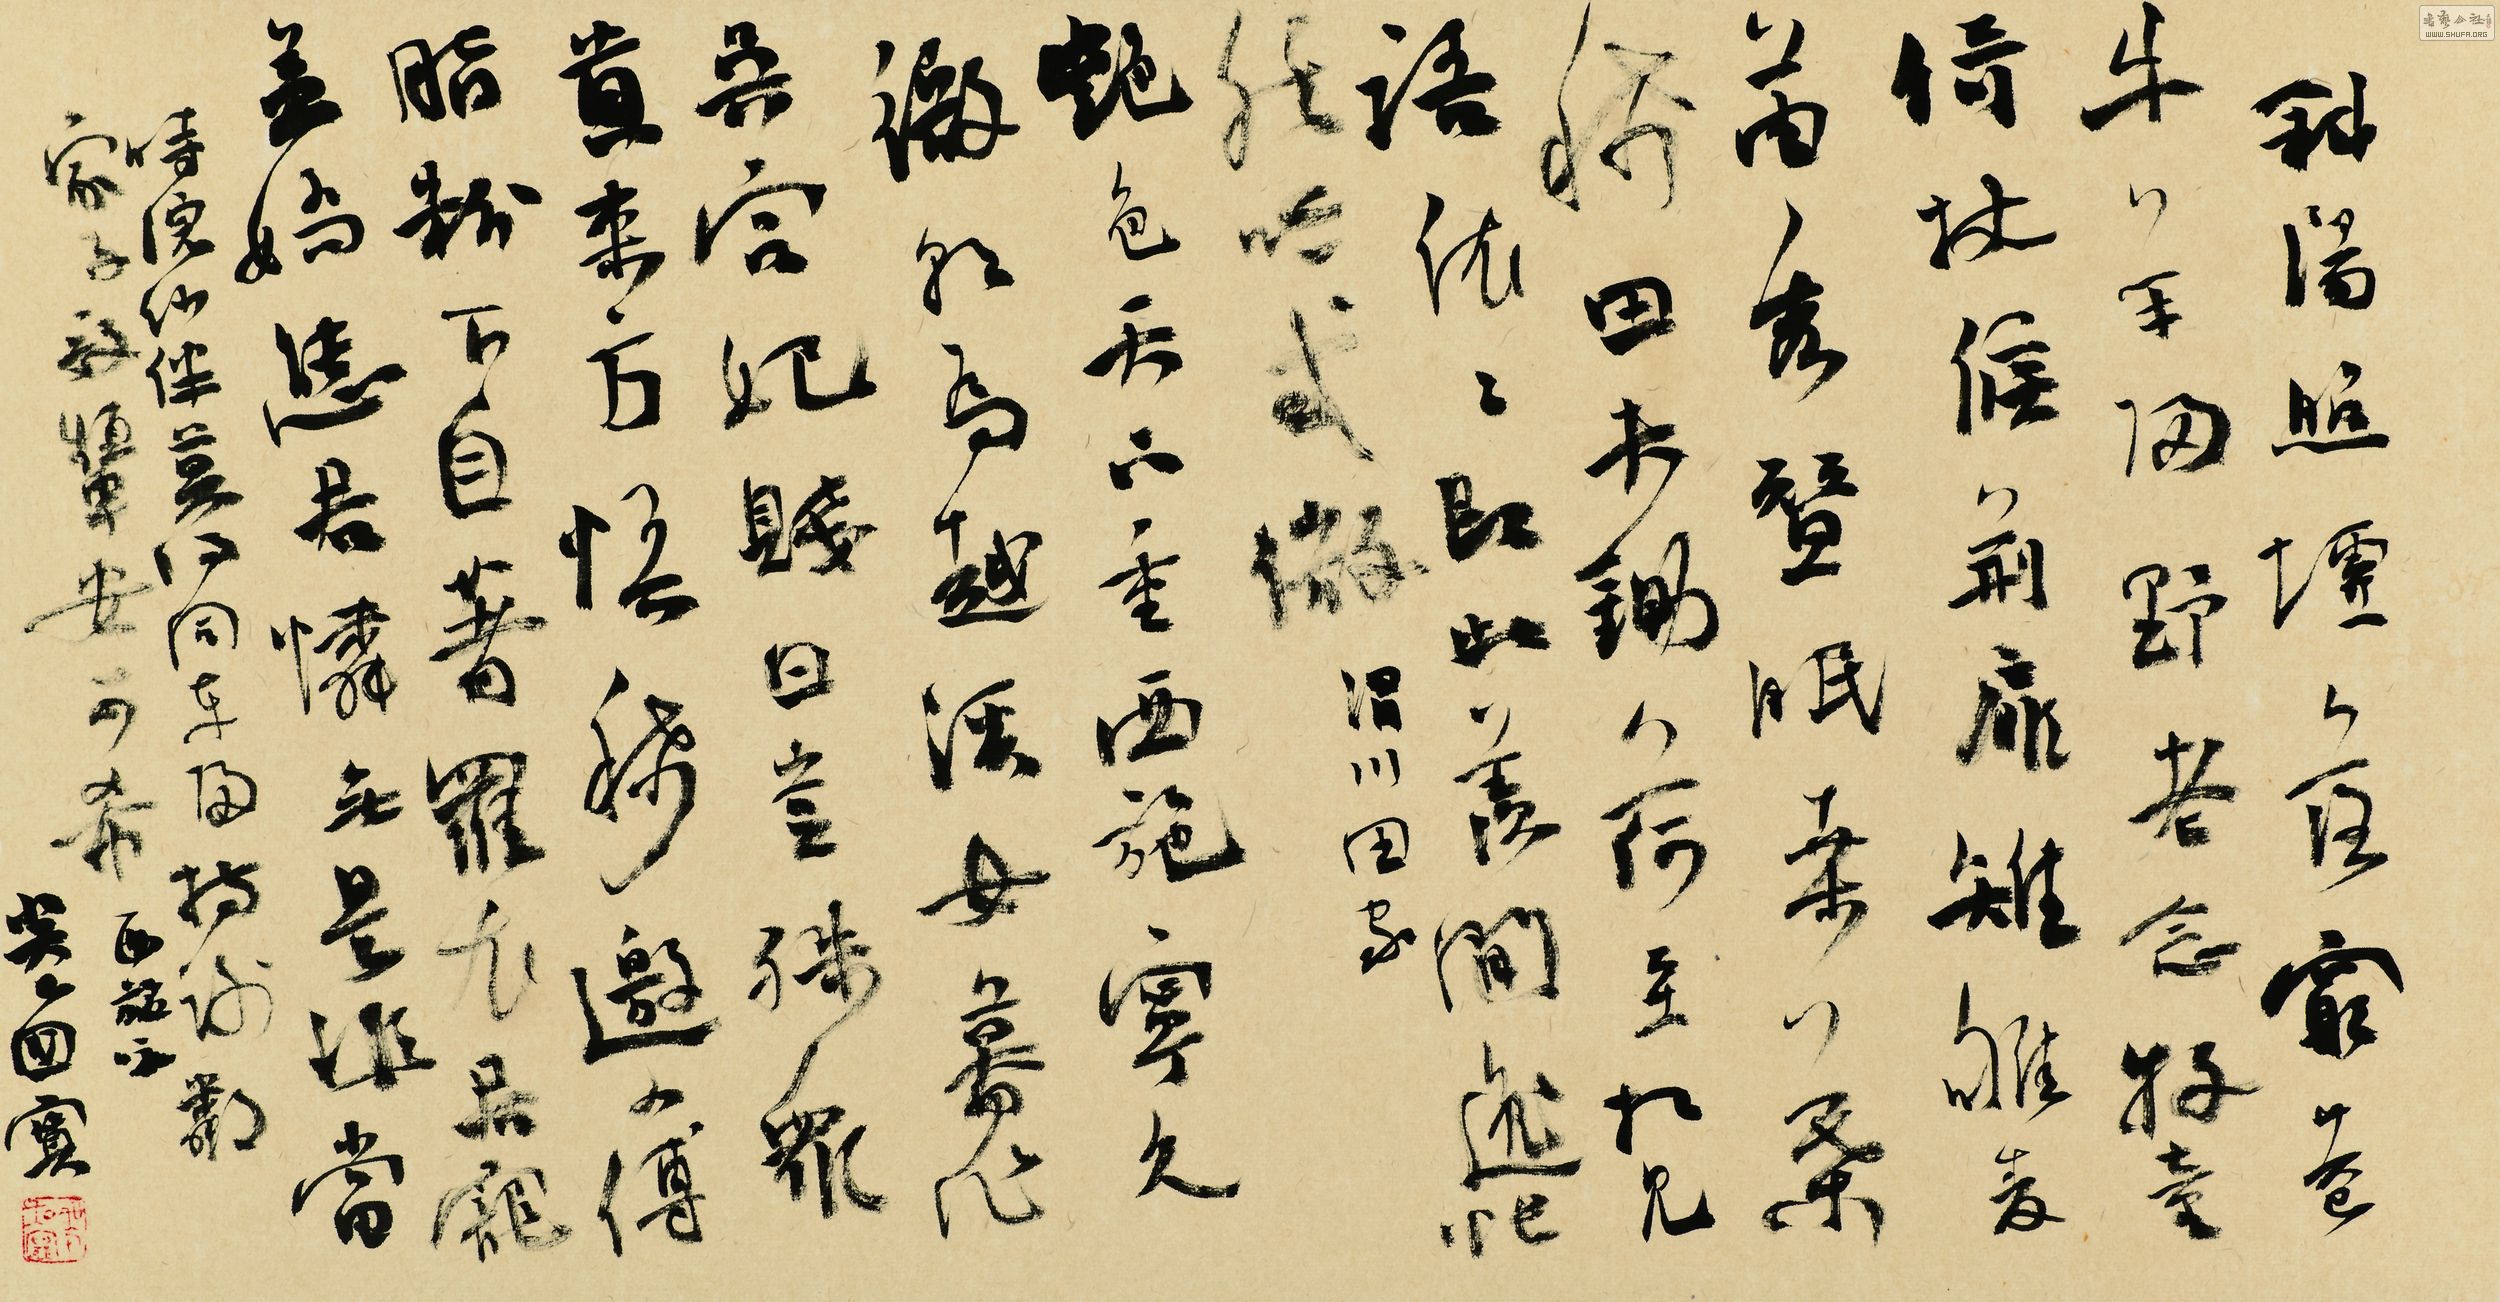 斜陽照墟落窮巷
牛羊歸野老念牧童
倚杖候荊扉雉雊麥
苗秀蠶眠桑葉
稀田夫鋤荷至相見
語依〻即此羨閒逸悵
然吟式微
渭川田家
艷色天下重西施寧久
微朝為越溪女暮作
吳宮妃賤日豈殊眾
貴來方悟稀邀人傅
脂粉不自著羅衣君寵
益嬌態君憐無是非當
時浣紗伴莫得同車歸持謝鄰
家子效顰安可希
西施詠
吳國寶
WWW.SHUFA.ORG